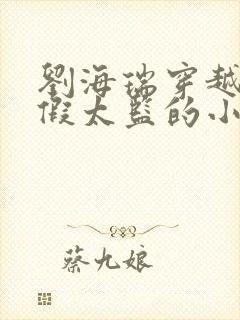 劉海瑞穿越
假太監的小
蔡九娘